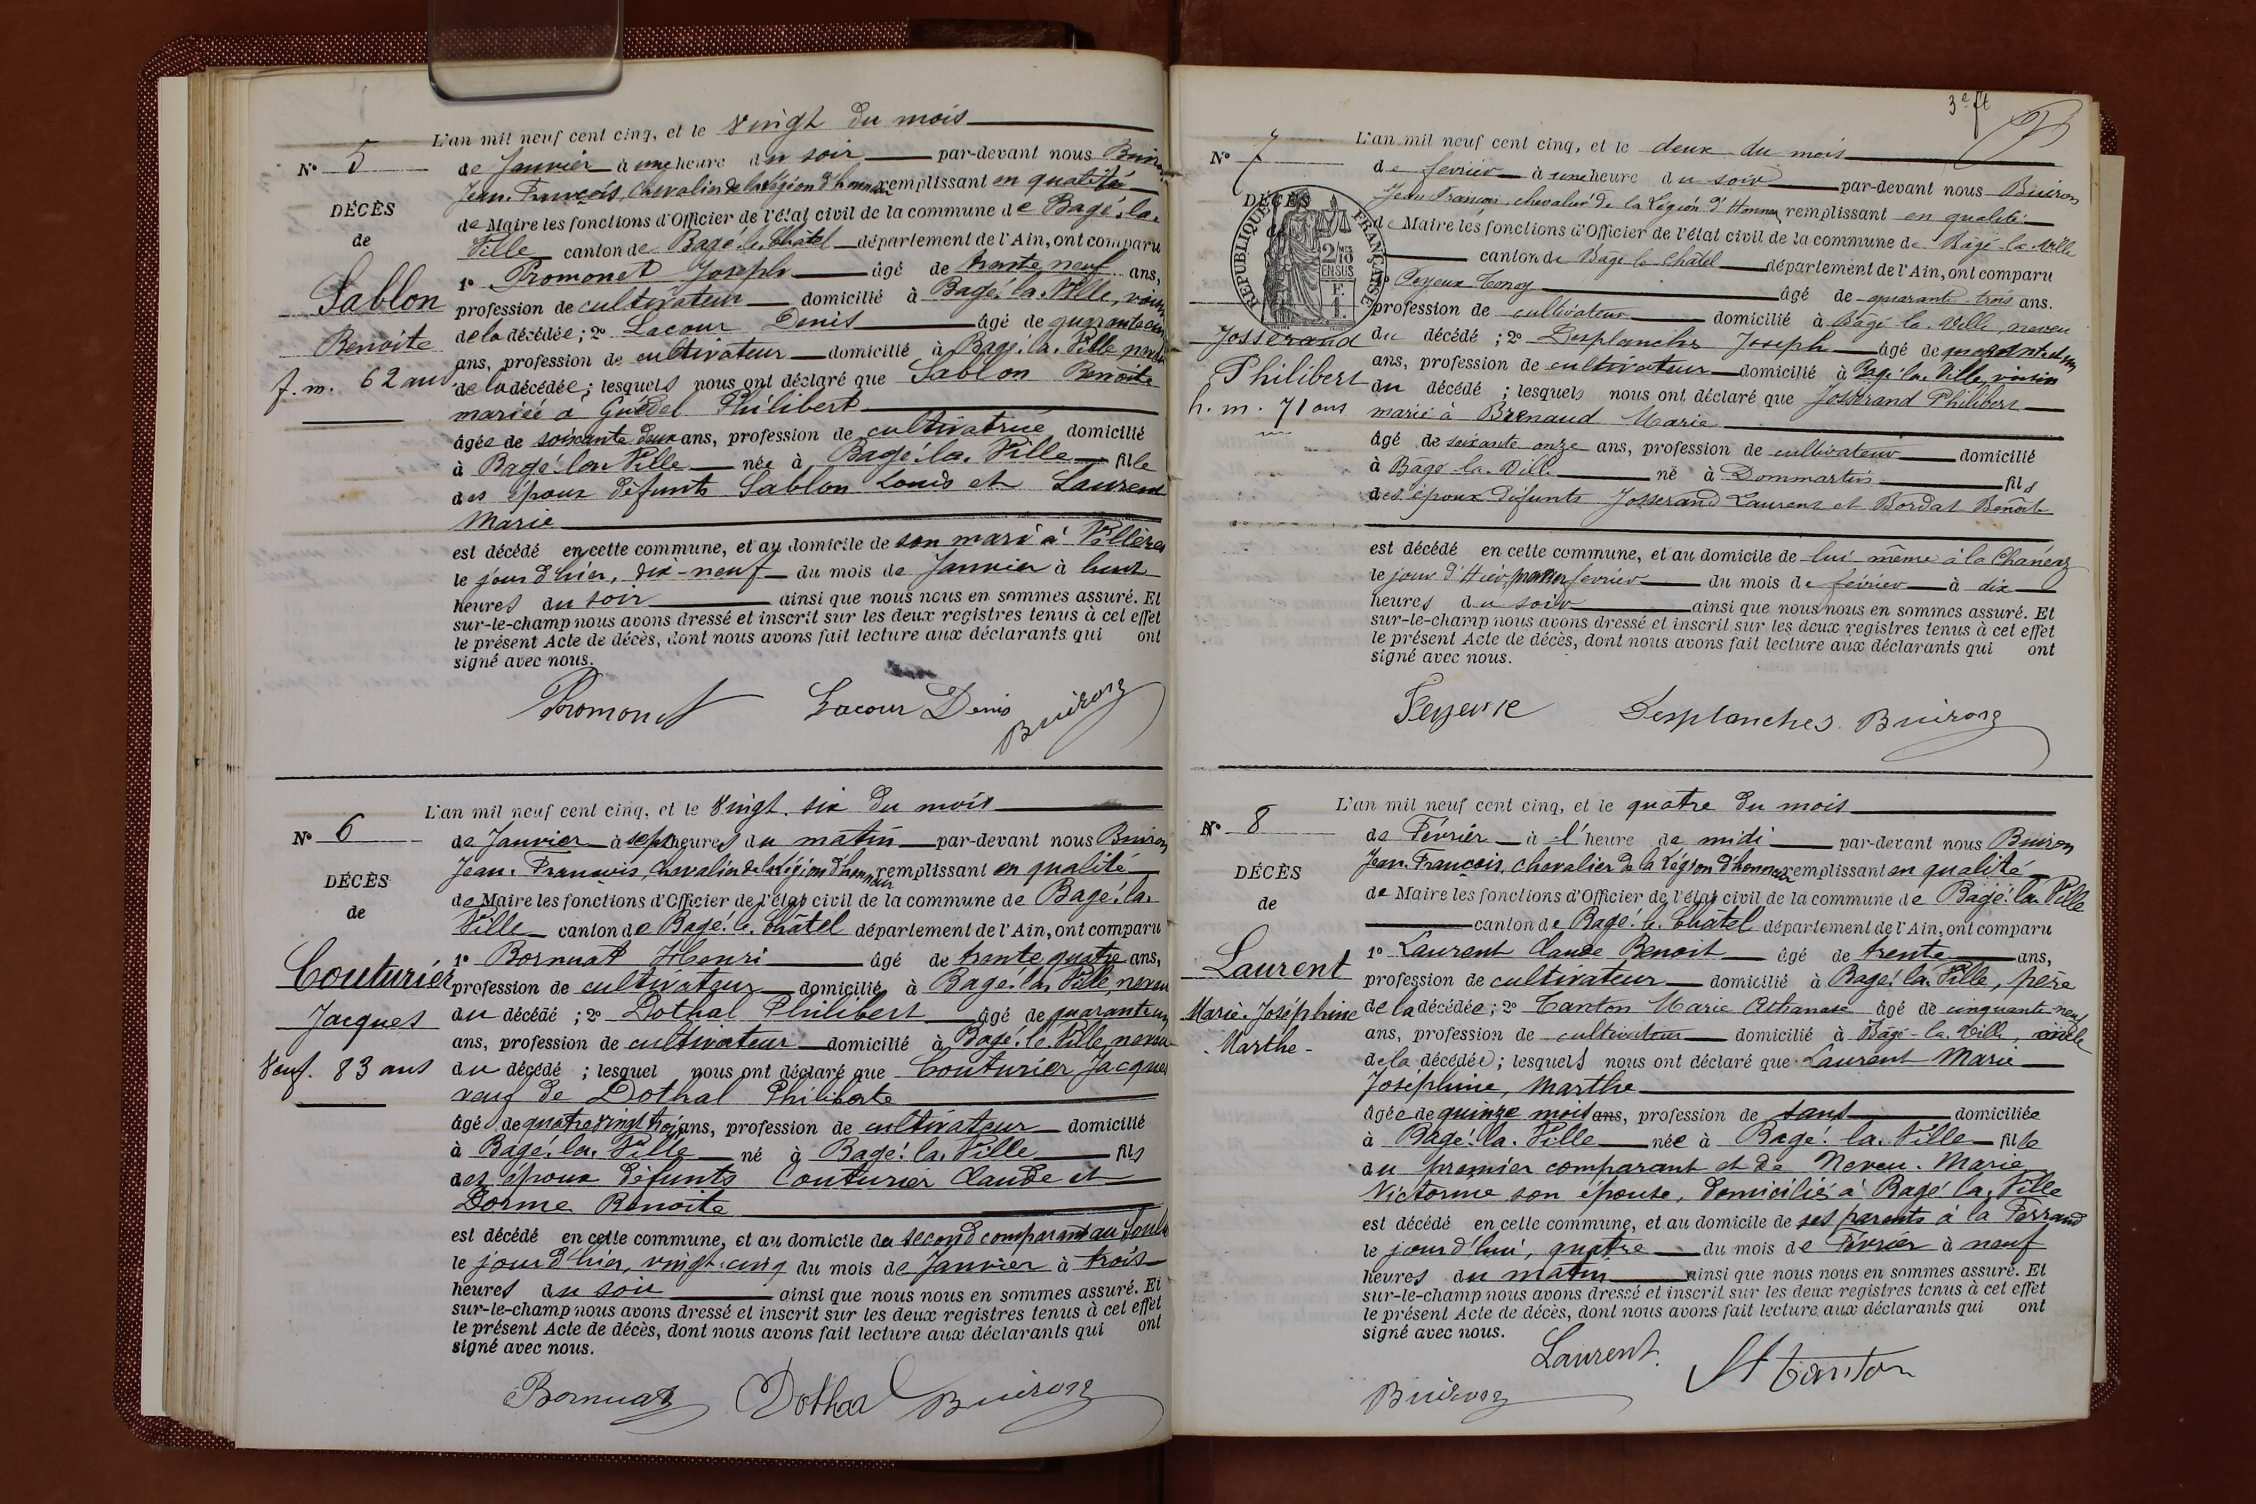 L'an mil neuf cent cinq, et le vingt du mois
N° 5
de Janvier à une heure du soir par-devant nous Buiron
Jean-François, chevalier de la légion d'honneur remplissant en qualité
DÉCÈS
de Maire les fonctions d'Officier de l'état civil de la commune de Bagé-la-
de
Ville canton de Bagé-le-Châtel département de l'Ain, ont comparu
1° Promonet Joseph âgé de trente neuf ans,
Sablon
profession de cultivateur domicilié à Bagé-la-Ville, voisin
de la décédée ; 2° Lacour Denis âgé de quarante cinq
Benoite
ans, profession de cultivateur domicilié à Bagé-la-Ville
f. m. 62 ans
de la décédée ; lesquels nous ont déclaré que Sablon Benoite
mariée à Guédel Philibert
âgée de soixante deux ans, profession de cultivatrice domicilié
à Bagé-la-Ville née à Bagé-la-Ville fille
des époux défunts Sablon Louis et Laurent
Marie
est décédé en cette commune, et au domicile de son mari à
le jour d'hier, dix-neuf du mois de Janvier à huit
heures du soir ainsi que nous nous en sommes assuré. Et
sur-le-champ nous avons dressé et inscrit sur les deux registres tenus à cet effet
le présent Acte de décès, dont nous avons fait lecture aux déclarants qui ont
signé avec nous.
Promonet Lacour Denis Buiron
L'an mil neuf cent cinq, et le vingt-six du mois
N° 6
de Janvier à sept heures du matin par-devant nous Buiron
Jean-François, chevalier de la légion d'honneur remplissant en qualité
DÉCÈS
de Maire les fonctions d'Officier de l'état civil de la commune de Bagé-la-
de
Ville canton de Bagé-le-Châtel département de l'Ain, ont comparu
1° Bornuat Henri âgé de trente quatre ans,
Couturier
profession de cultivateur domicilié à Bagé-la-Ville, neveu
Jacques
du décédé ; 2° Dothal Philibert âgé de quarante un
ans, profession de cultivateur domicilié à Bagé-la-Ville, neveu
Veuf. 83 ans
du décédé ; lesquel nous ont déclaré que Couturier Jacques
veuf de Dothal Philiberte
âgé de quatre vingt trois ans, profession de cultivateur domicilié
à Bagé-la-Ville né à Bagé-la-Ville fils
des époux défunts Couturier Claude et
Dorme Benoite
est décédé en cette commune, et au domicile du second comparant au
le jour d'hier, vingt-cinq du mois de Janvier à trois
heures du soir ainsi que nous nous en sommes assuré. Et
sur-le-champ nous avons dressé et inscrit sur les deux registres tenus à cet effet
le présent Acte de décès, dont nous avons fait lecture aux déclarants qui ont
signé avec nous.
Bornuat Dothal Buiron
3e ft
L'an mil neuf cent cinq, et le deux du mois
N° 7
de fevrier à une heure du soir par-devant nous Buiron
Jean François, chevalier de la Légion d'Honneur remplissant en qualité
DÉCÈS
de Maire les fonctions d'Officier de l'état civil de la commune de Bâgé-la-Ville
RÉPUBLIQUE FRANÇAISE
2/10 EN SUS
canton de Bâgé le Châtel département de l'Ain, ont comparu
1° Peyeux âgé de quarante trois ans.
profession de cultivateur domicilié à Bâgé-la-Ville, neveu
Josserand
du décédé ; 2° Desplanches Joseph âgé de
ans, profession de cultivateur domicilié à Bagé-la-Ville, voisin
Philibert
du décédé ; lesquels nous ont déclaré que Josserand Philibert
h. m. 71 ans
marié à Brenaud Marie
âgé de soixante onze ans, profession de cultivateur domicilié
à Bâgé-la-Ville né à Dommartin fils
des époux défunts Josserand Laurent et Bordat Benoîte
est décédé en cette commune, et au domicile de lui-même à la Chanéaz
le jour d'Hier, premier fevrier du mois de février à dix
heures du soir ainsi que nous nous en sommes assuré. Et
sur-le-champ nous avons dressé et inscrit sur les deux registres tenus à cet effet
le présent Acte de décès, dont nous avons fait lecture aux déclarants qui ont
signé avec nous.
Peyeux Desplanches Buiron
L'an mil neuf cent cinq, et le quatre du mois
N° 8
de Février à l'heure de midi par-devant nous Buiron
Jean-François, chevalier de la Légion d'honneur remplissant en qualité
DÉCÈS
de Maire les fonctions d'Officier de l'état civil de la commune de Bagé-la-Ville
de
canton de Bagé-le-Châtel département de l'Ain, ont comparu
1° Laurent Claude Benoit âgé de trente ans,
Laurent
profession de cultivateur domicilié à Bagé-la-Ville, père
Marie-Joséphine
de la décédée ; 2° Tanton Marie Athanase âgé de cinquante-neuf
ans, profession de cultivateur domicilié à Bâgé-la-Ville, oncle
- Marthe -
de la décédée ; lesquels nous ont déclaré que Laurent Marie
Joséphine, Marthe
âgée de quinze mois ans, profession de sans domiciliée
à Bagé-la-Ville née à Bagé-la-Ville fille
du premier comparant et de Neveu Marie
Victorine son épouse, domiciliés à Bagé-la-Ville
est décédé en cette commune, et au domicile de ses parents à la
le jour d'hui, quatre du mois de Février à neuf
heures du matin ainsi que nous nous en sommes assuré. Et
sur-le-champ nous avons dressé et inscrit sur les deux registres tenus à cet effet
le présent Acte de décès, dont nous avons fait lecture aux déclarants qui ont
signé avec nous.
Laurent Tanton
Buiron